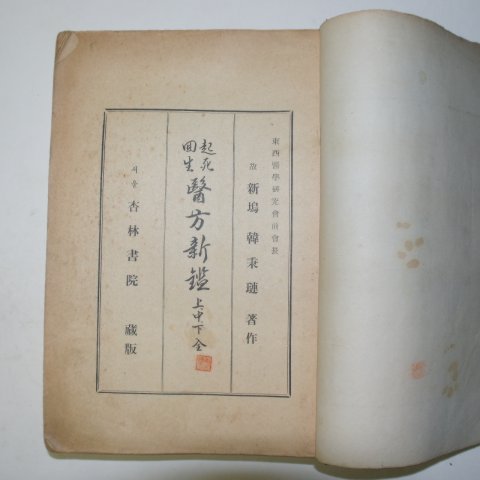 東西醫學硏究會前會長
故 新塢 韓秉璉 著作
起死
回生
醫方新鑑 上中下全
서울 杏林書院 蔵版